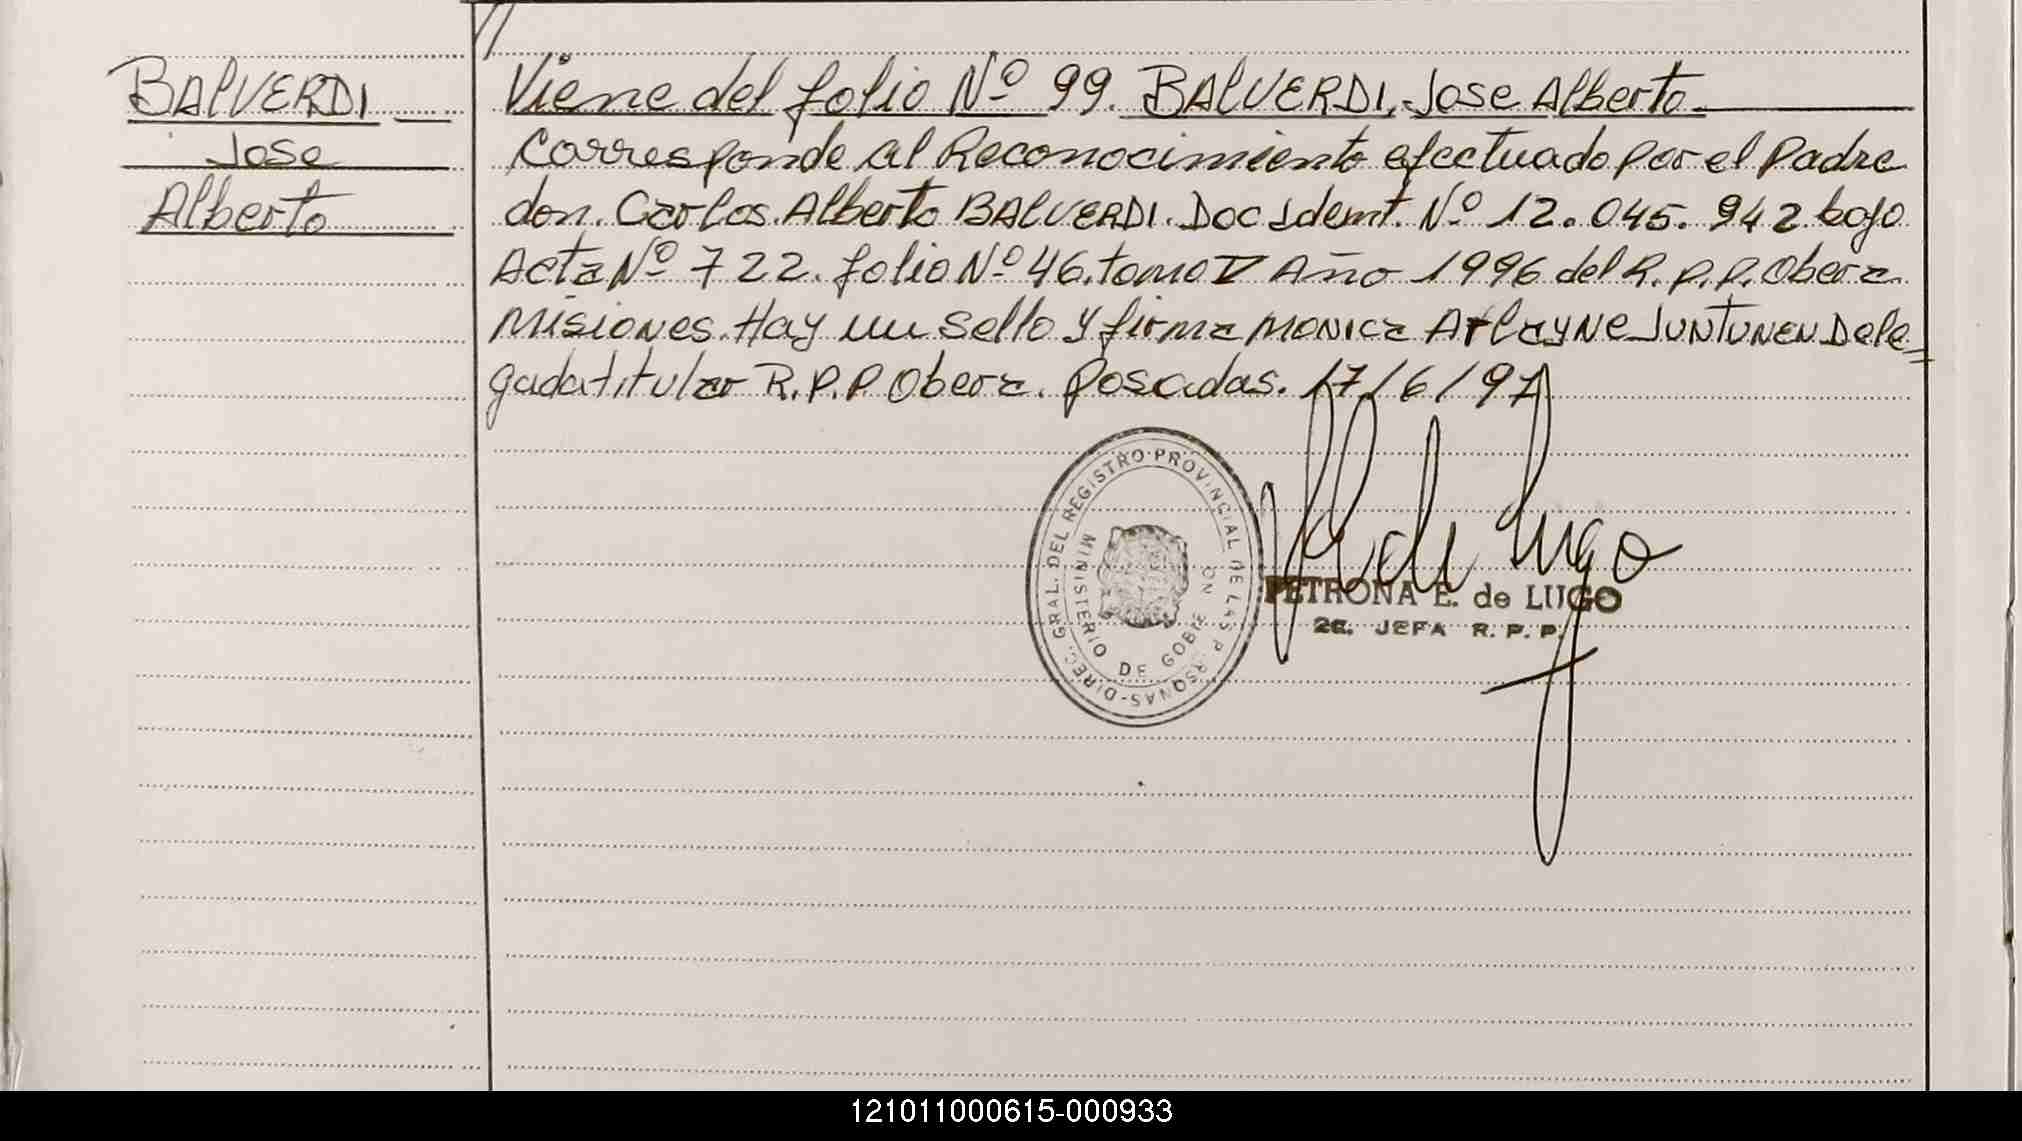 BALVERDI
Jose
Alberto
Viene del folio Nº 99. BALVERDI, Jose Alberto.
Corresponde al Reconocimiento efectuado por el Padre
don. Carlos Alberto BALVERDI. Doc Ident. Nº 12.045.942 bajo
Acta Nº 722. folio Nº 46. tomo V Año 1996 del R.P.P. Obera
Misiones. Hay un sello y firma MONICA Arlayne JUNTUNEN Dele=
gada titular R.P.P. Obera. Posadas. 17/6/97
DIREC. GRAL. DEL REGISTRO PROVINCIAL DE LAS P RSONAS
MINISTERIO DE GOBIE NO
de Lugo
PETRONA E. de LUGO
2a. JEFA R. P. P.
121011000615-000933